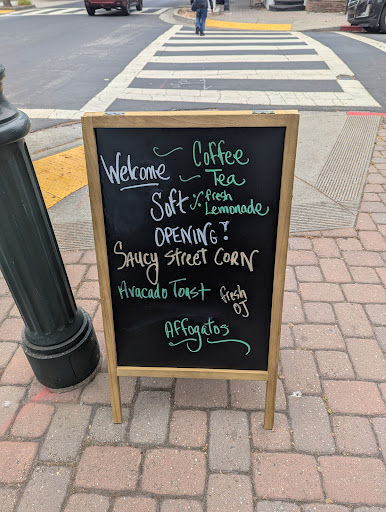 Welcome ~ Coffee
~ Tea
Soft % fresh Lemonade
OPENING!
SAUCY STREET CORN
AVACADO TOAST fresh OJ
AFFOGATOS